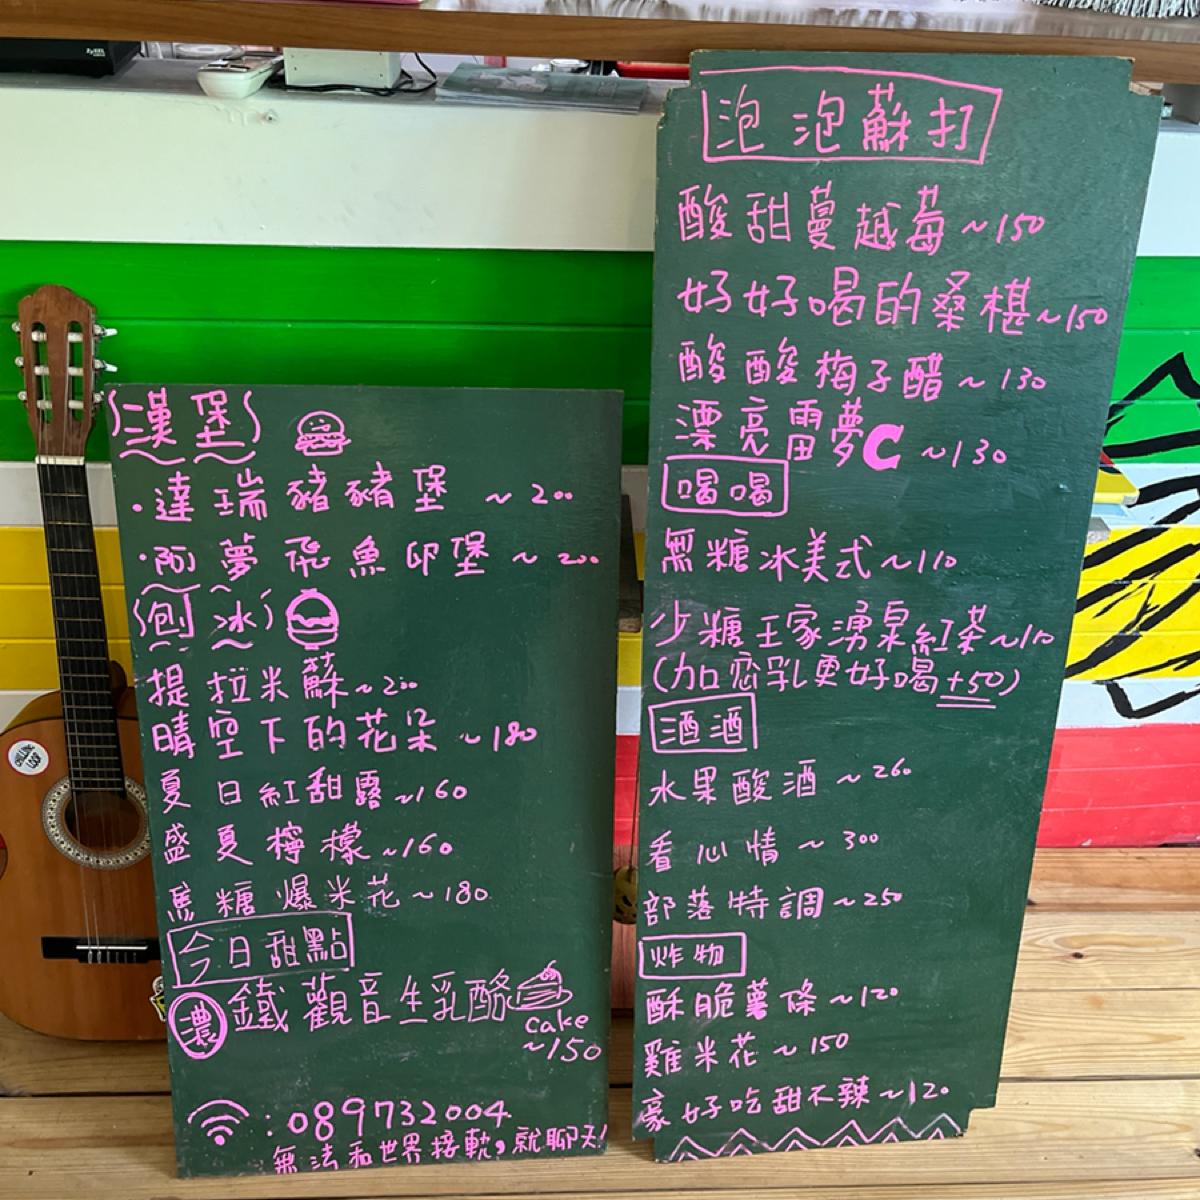 漢堡
·達瑞豬豬堡 ~200
·阿夢飛魚卵堡 ~200
刨冰
提拉米蘇~200
晴空下的花朵 ~180
夏日紅甜露~160
盛夏檸檬~160
馬糖爆米花~180
今日甜點
濃 鐵觀音生乳酪
cake
~150
:089732004
無法和世界接軌,就聊天!
泡泡蘇打
酸甜蔓越莓~150
好好喝的桑椹~150
酸酸梅子醋~130
漂亮雷夢C~130
喝喝
無糖冰美式~110
少糖王家湧泉紅茶~110
(加密乳更好喝+50)
酒酒
水果酸酒~260
看心情~300
部落特調~250
炸物
酥脆薯條~120
雞米花~150
豪好吃甜不辣~120
CHILLING LOOP
ZyXEL